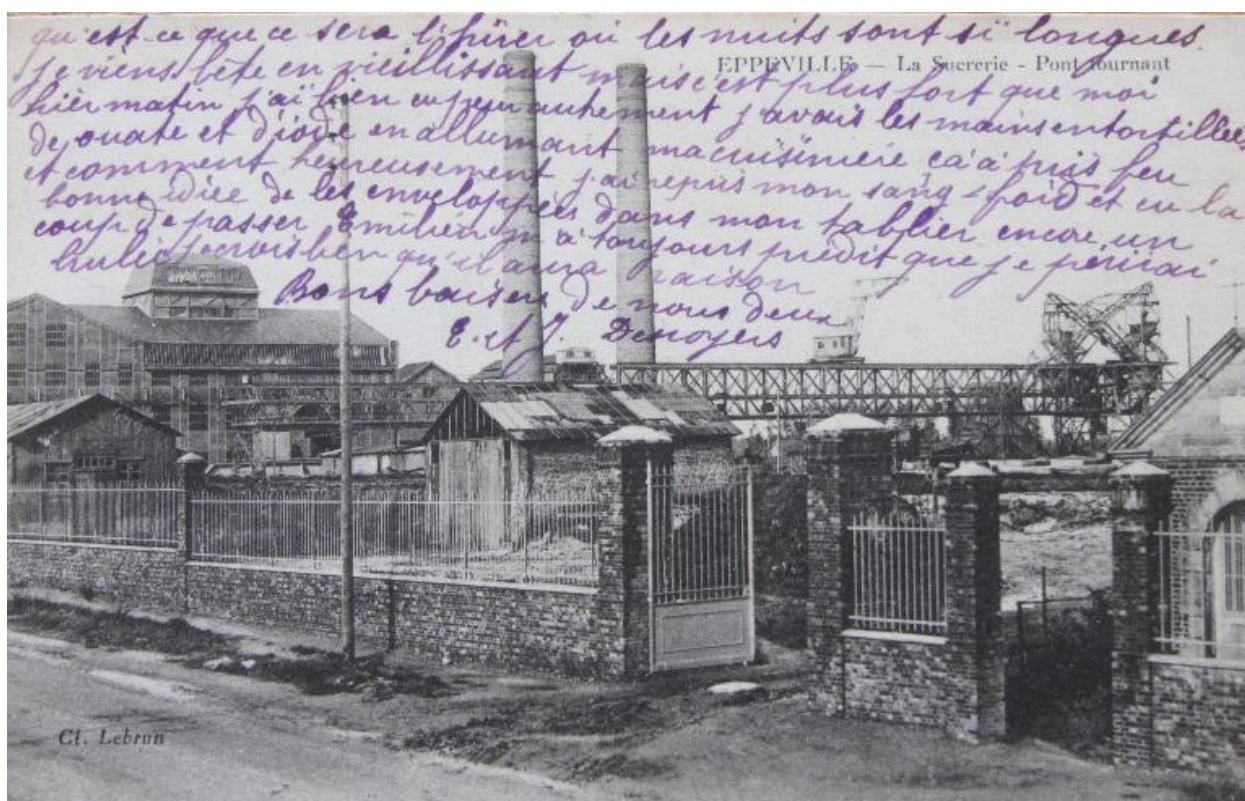 qu'est-ce que ce sera l'hiver où les nuits sont si longues.
EPPEVILLE — La Sucrerie - Pont tournant
je viens bête en vieillissant mais c'est plus fort que moi
hier matin j'ai bien eu peur autrement j'avais les mains entortillées
de ouate et d'iode en allumant ma cuisinière ça a pris feu
et comment heureusement j'ai repris mon sang-froid et eu la
bonne idée de les envelopper dans mon tablier encore un
coup de passer Emilien m'a toujours prédit que je périrai
brulée je crois bien qu'il aura raison
Bons baisers de nous deux
E. et J. Desnoyers
Cl. Lebrun